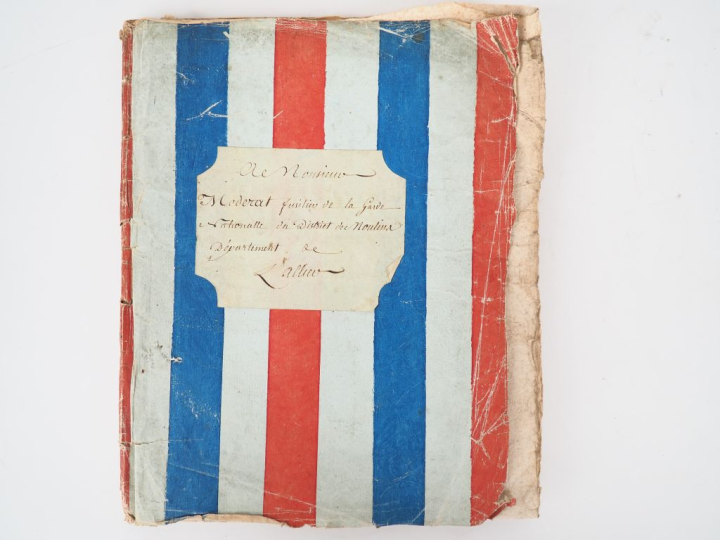 De Monsieur
Moderat fusilier de la Garde
Nationalle du District de Moulins
Département de
L'allier